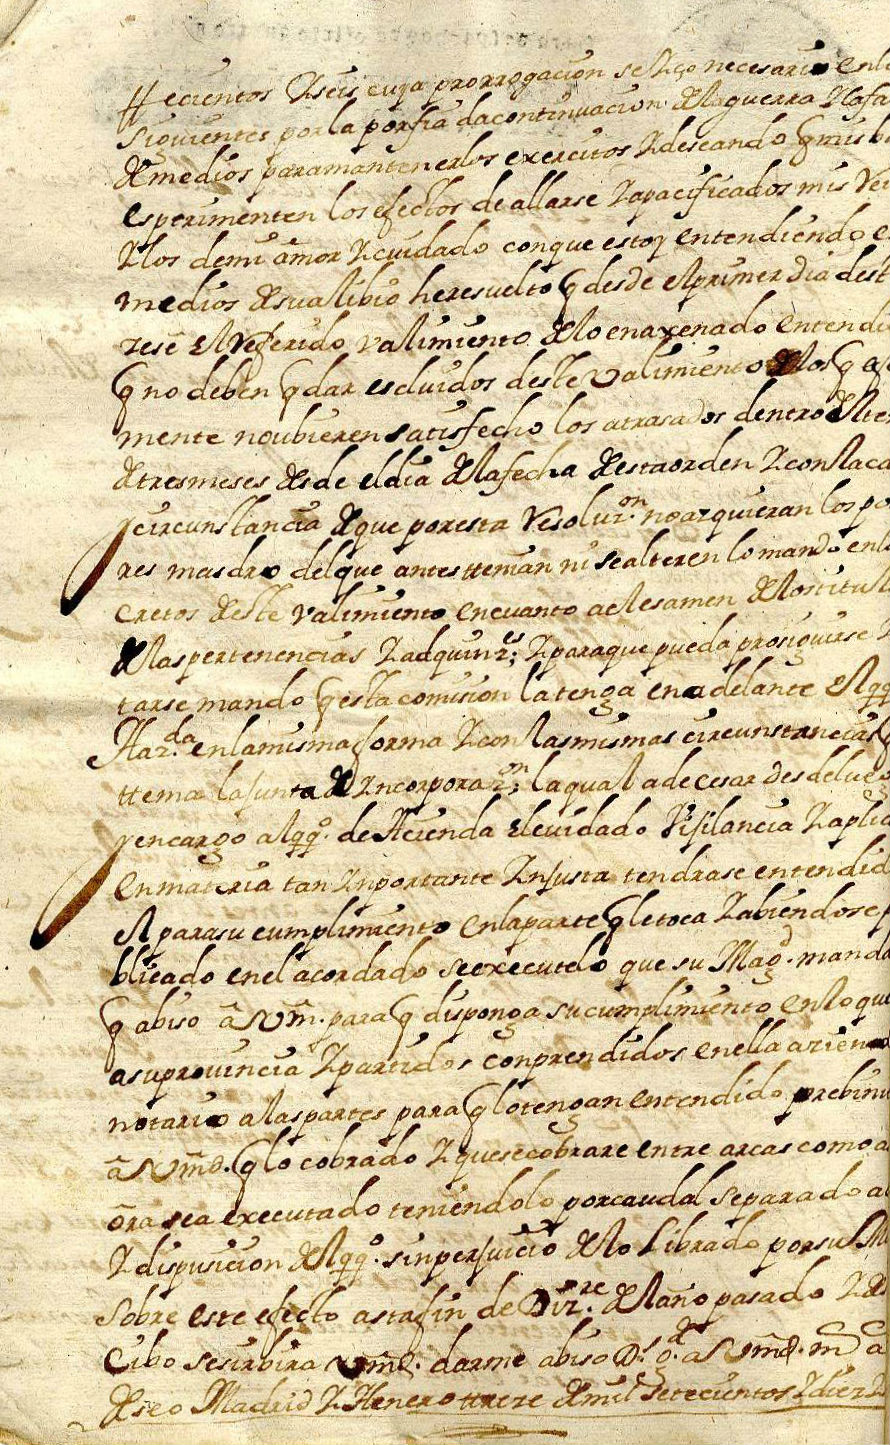 ttecientos Y seis cuya prorrogacion se Yço necesario en lo
siguientes por la porfiada continuacion de la guerra Y la fa
de medios para mantener los exercitos Y deseando q mis
esperimenten los efectos de allarse Ya pacificados mis
Y los de mi amor Y cuidado con que estoy entendiendo e
medios de su alibio he resuelto q desde el primer dia dest
zese el referido valimiento de lo enaxenado entendi
q no deben qdar escluidos deste valimiento de los q
mente no ubieren satisfecho los atrasados dentro del ter
de tres meses desde el dia de la fecha de esta orden Y con la ca
y circunstancia de que por esta Resoluz.on no azquieran los po
res mas dro del que antes ttenian ni se alteren lo mandº en lo
cretos deste valimiento en cuanto a el esamen de los titul
de las pertenencias Y adquinz.es; Y para que pueda proseguirse
tarse mando q esta comision la tenga en adelante el qq
Haz.da en la misma forma Y con las mismas circunstancias q
ttema la junta de Yncorporaz.on; la qual a de cesar desde lueg
y encargo al qqº. de Acienda el cuidado Vijilancia Y aplic
en materia tan Ynportante Ynjusta tendrase entendid
el para su cumplimiento en la parte q le toca Y abiendose p
blicado en el acordado se execute lo que su Magd. manda
q abiso â Vm̃. para q disponga su cumplimiento en lo que
a su provincia Y partidos conprendidos en ella acien
notario a las partes para q lo tengan entendido prebini
â Vm̃d. q lo cobrado Y que se cobrare entre arcas como a
ôra sea executado teniendolo por caudal separado a
Y dispusicion del qqº. sin perjuicio de lo Librado por su M
sobre este efecto asta fin de Diz.re del año pasado Y de
cibo se sirbira Vm̃d. darme abiso D.s g.de a Vm̃d. m a
deseo Madrid Y Henero ttreze de mil setecientos Y diez